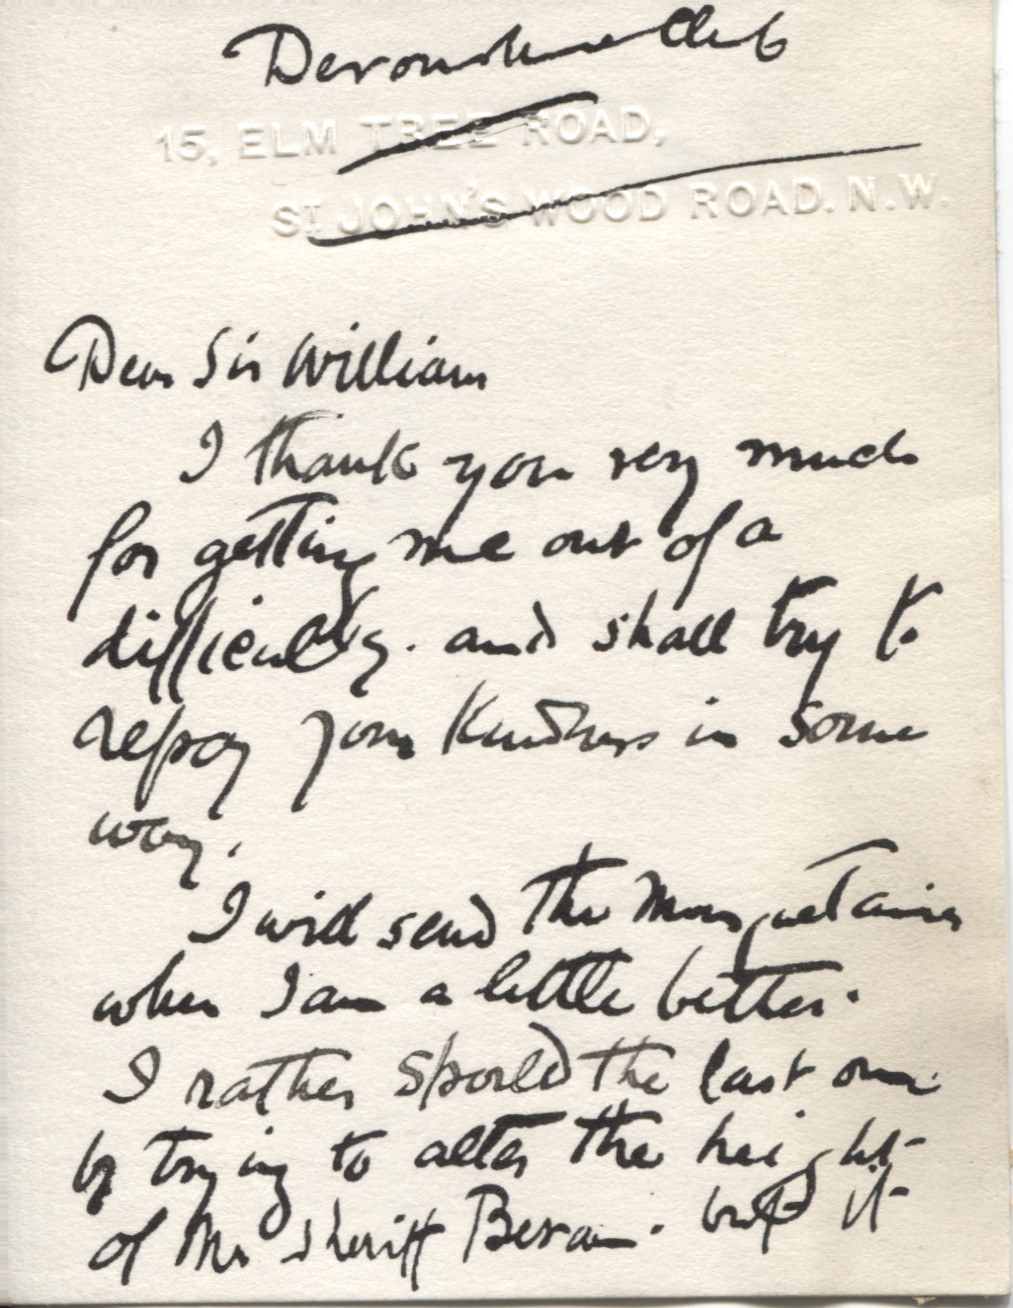 Devonshire Club
15, ELM TREE ROAD,
ST JOHN'S WOOD ROAD. N.W.
Dear Sir William
I thank you very much
for getting me out of a
difficulty. and shall try to
repay your kindness in some
way.
I will send the Mousquetaires
when I am a little better.
I rather spoiled the last one
by trying to alter the height
of Mr Sheriff Bevan. but it